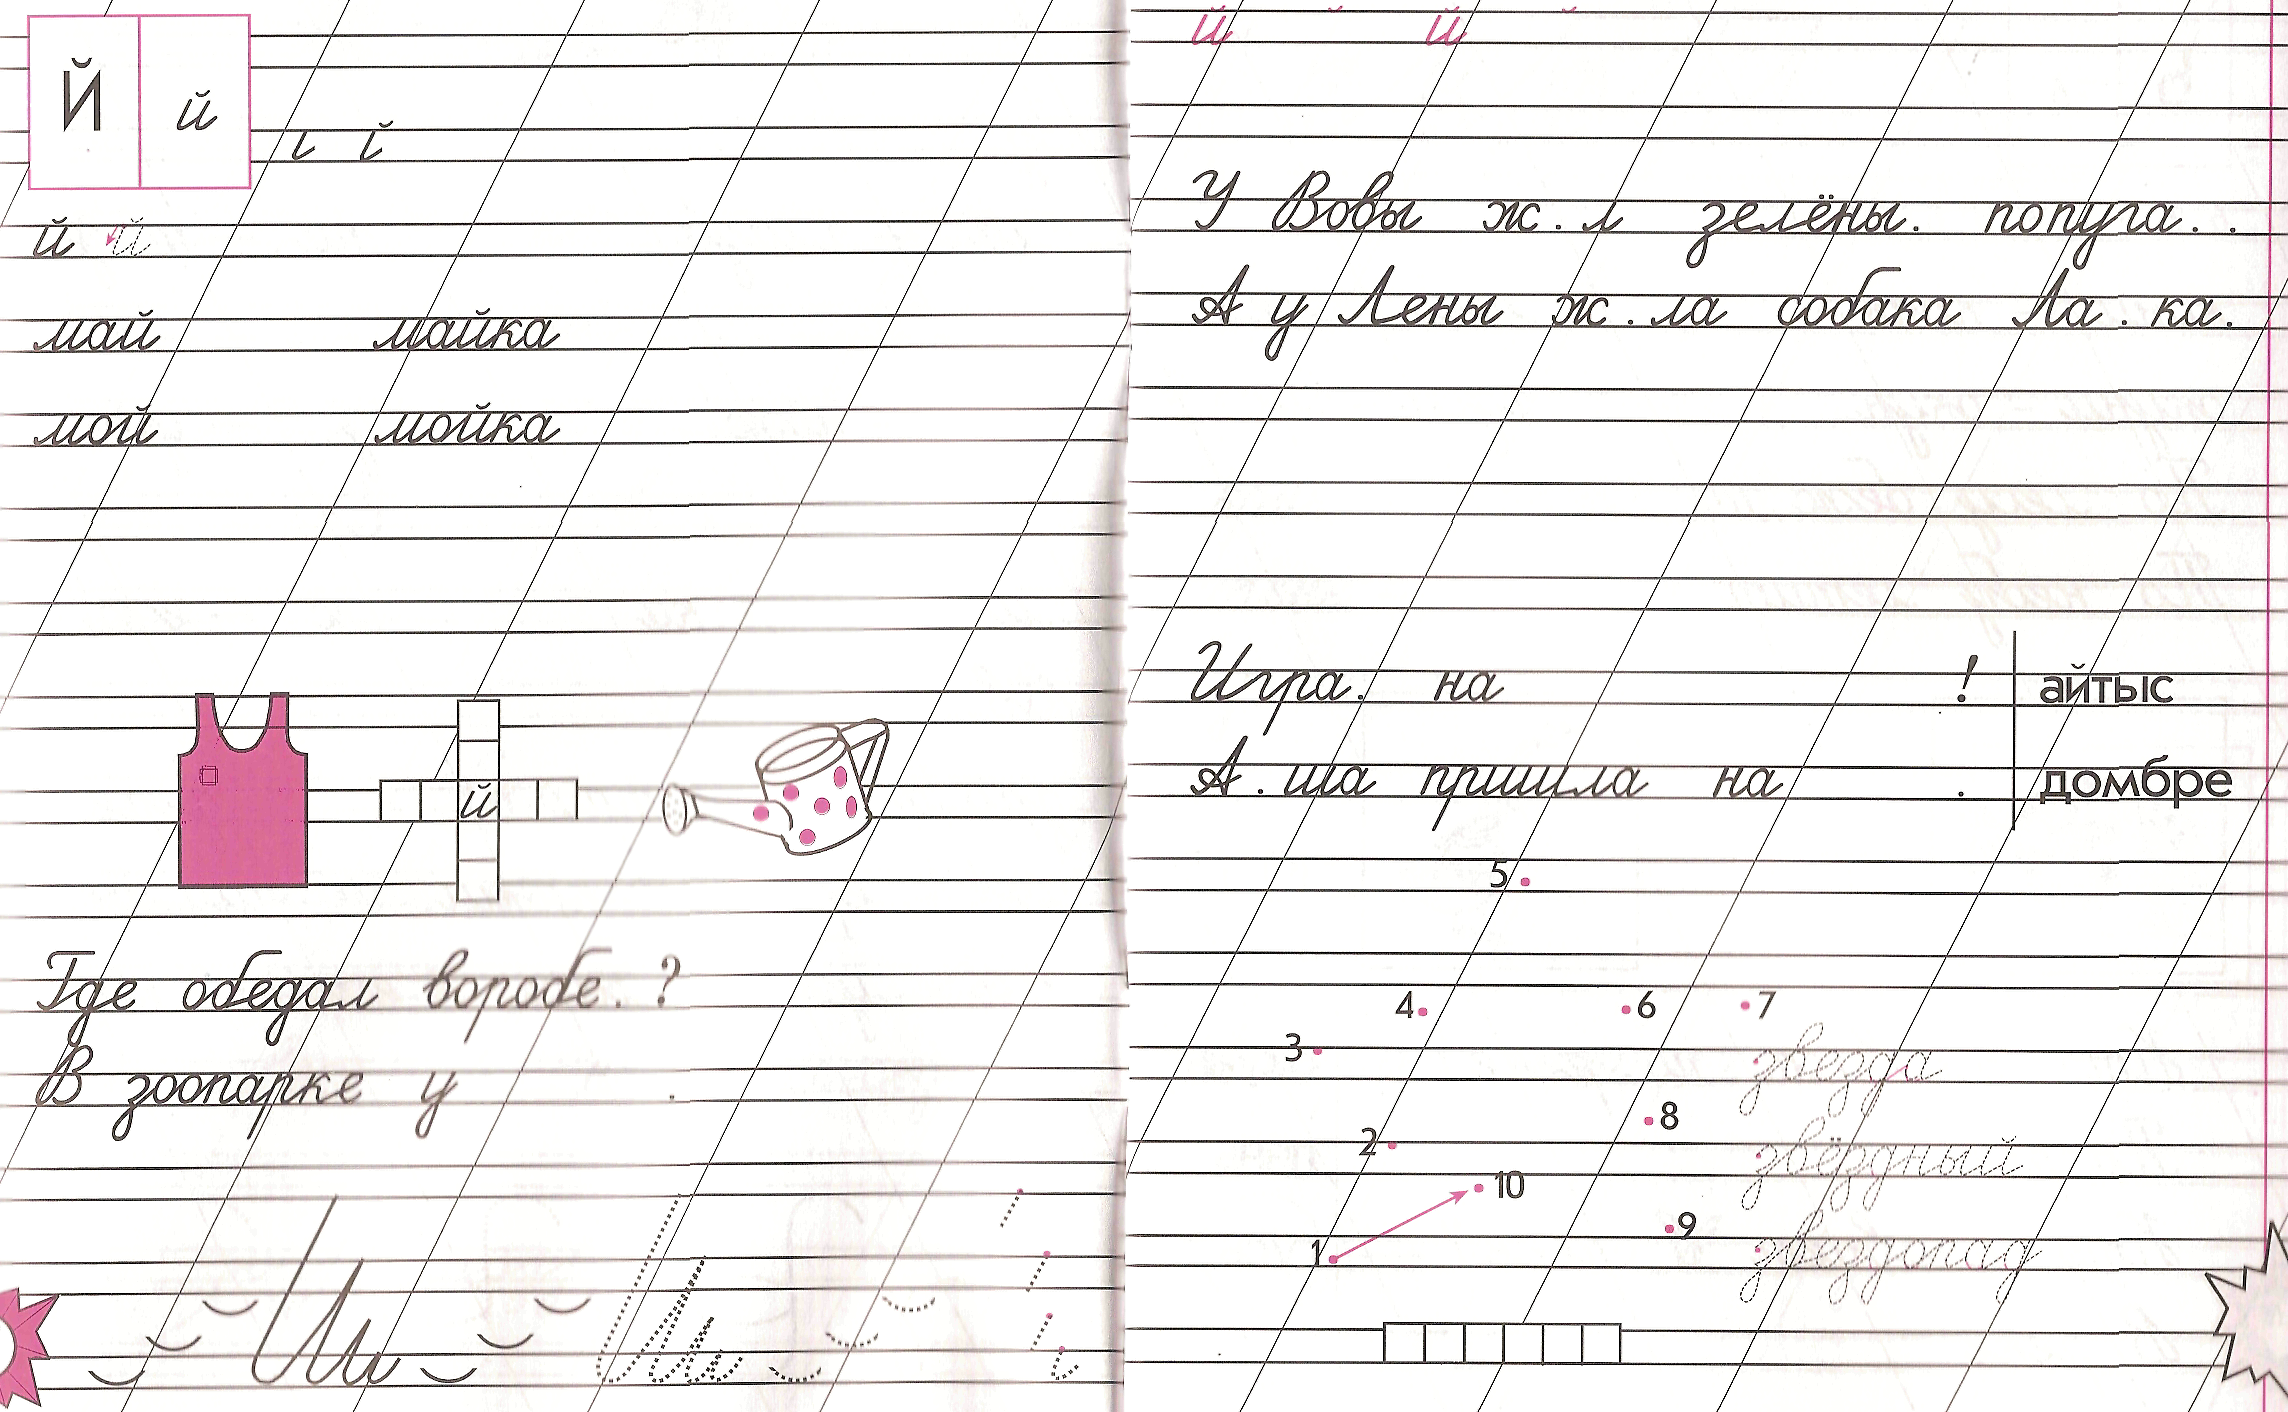 Й й
й й
май майка
мой мойка
й
Где обедал воробе. ?
В зоопарке у .
й й
У Вовы ж . л зелёны. попуга. .
А у Лены ж . ла собака Ла . ка.
Игра. на ! айтыс
А . ша пришла на . домбре
5
4 6 7
3
звезда
8
2
звёздный
10
9
1
звездопад